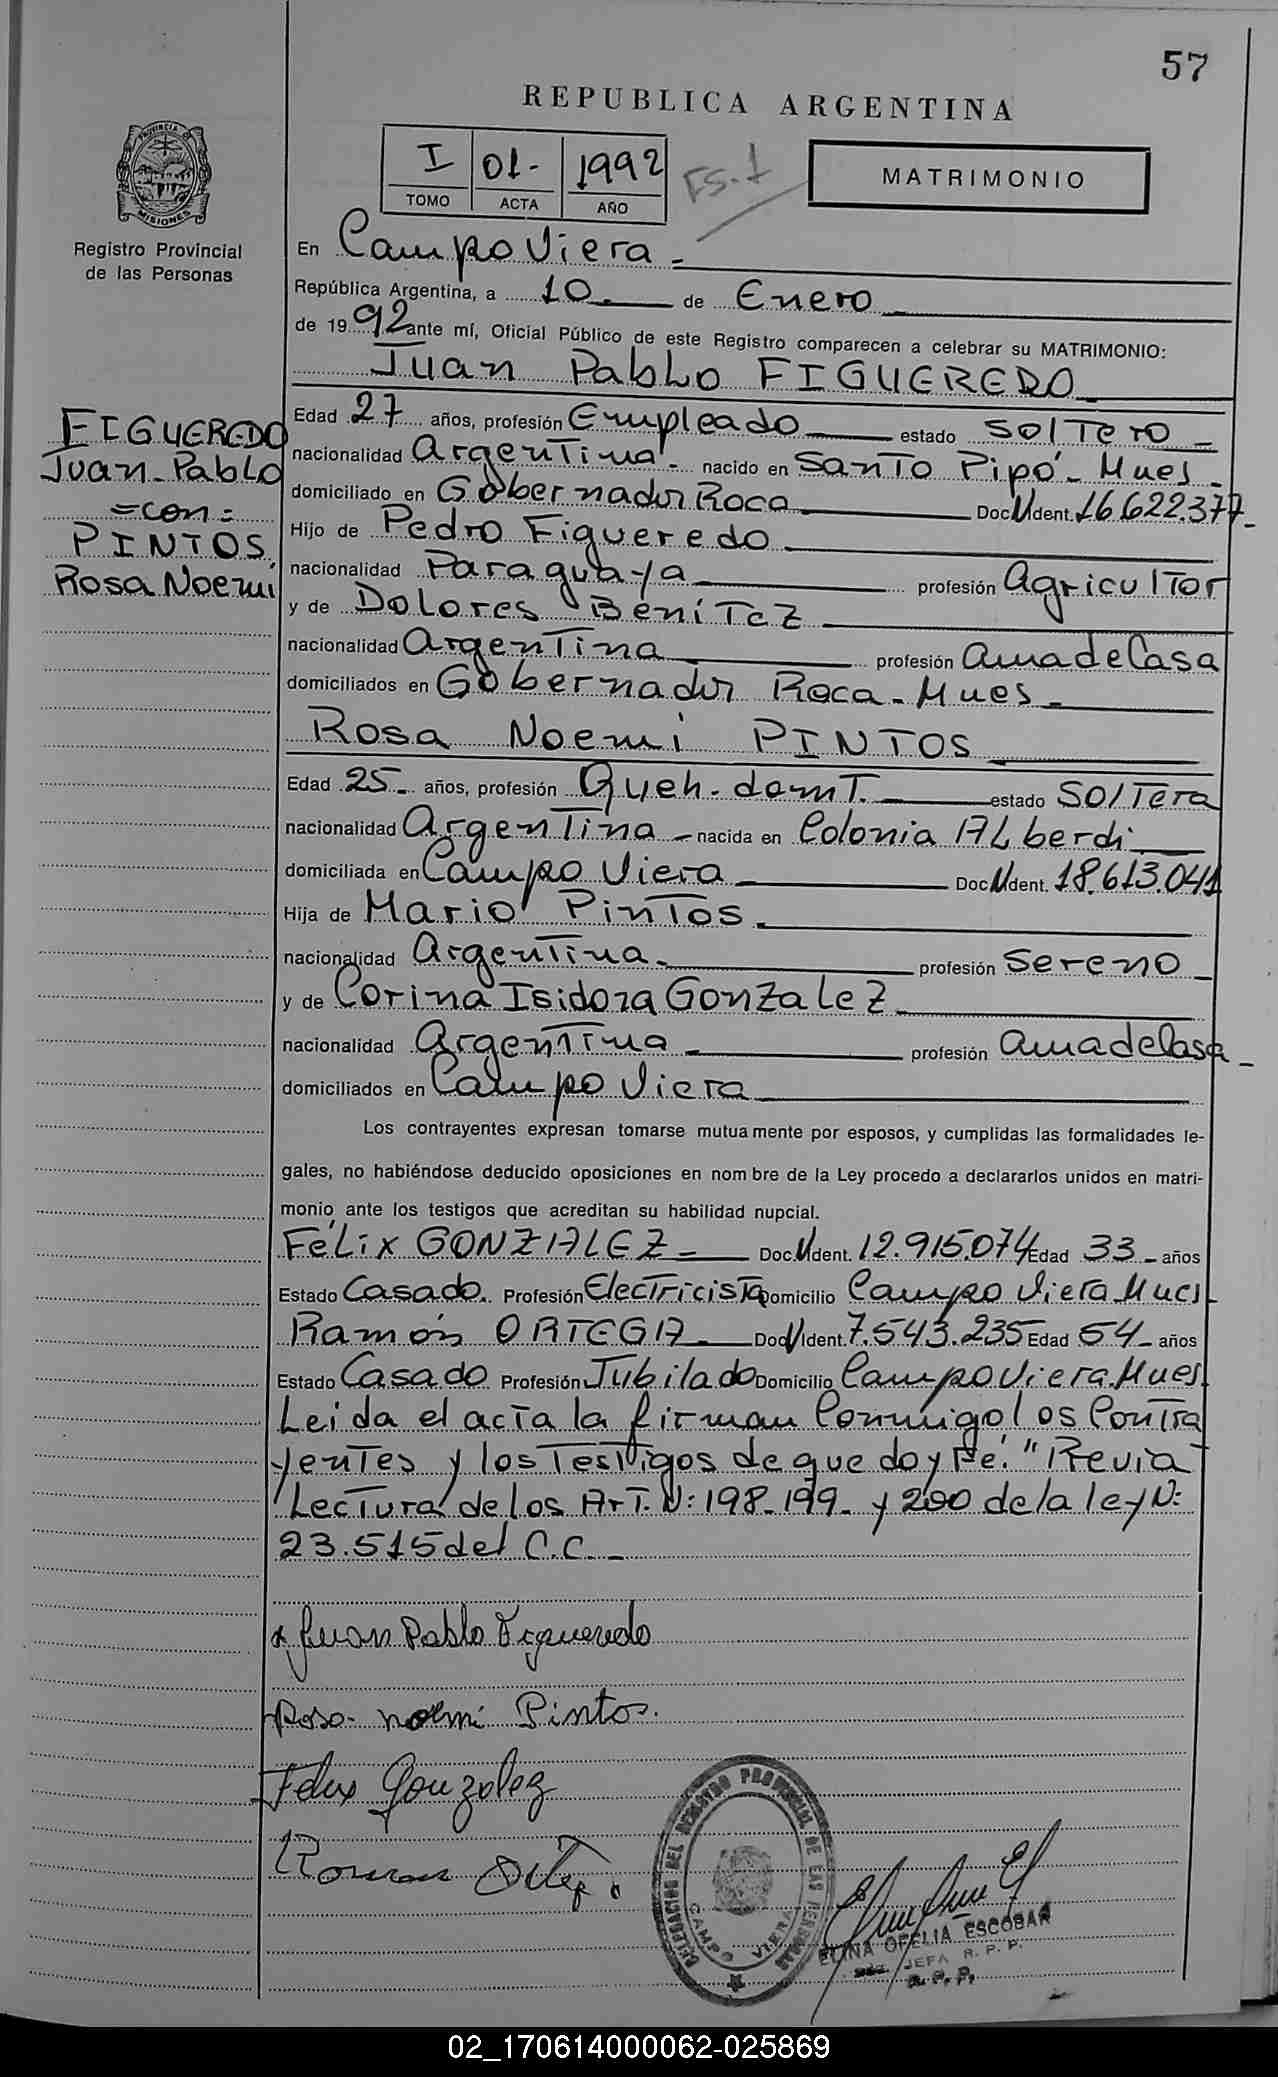 57
REPUBLICA ARGENTINA
I 01- 1992 FS. 1
TOMO ACTA AÑO
MATRIMONIO
PROVINCIA DE MISIONES
Registro Provincial
de las Personas
En Campo Viera -
República Argentina, a 10 de Enero
de 1992 ante mí, Oficial Público de este Registro comparecen a celebrar su MATRIMONIO:
Juan Pablo FIGUEREDO
FIGUEREDO
Juan Pablo
= con =
PINTOS
Rosa Noemi
Edad 27 años, profesión Empleado estado Soltero -
nacionalidad Argentina - nacido en Santo Pipó - Mnes -
domiciliado en Gobernador Roca Doc. N Ident. 16.622.377-
Hijo de Pedro Figueredo
nacionalidad Paraguaya profesión Agricultor
y de Dolores Benitez
nacionalidad Argentina profesión ama de Casa
domiciliados en Gobernador Roca - Mnes -
Rosa Noemi PINTOS
Edad 25 - años, profesión Queh. domt. estado Soltera
nacionalidad Argentina - nacida en Colonia Alberdi
domiciliada en Campo Viera Doc. N Ident. 18.613.041
Hija de Mario Pintos
nacionalidad Argentina - profesión Sereno -
y de Corina Isidora Gonzalez
nacionalidad Argentina profesión ama de Casa -
domiciliados en Campo Viera
Los contrayentes expresan tomarse mutuamente por esposos, y cumplidas las formalidades le-
gales, no habiéndose deducido oposiciones en nombre de la Ley procedo a declararlos unidos en matri-
monio ante los testigos que acreditan su habilidad nupcial.
Félix GONZALEZ - Doc. N Ident. 12.915.074 Edad 33 - años
Estado Casado. Profesión Electricista Domicilio Campo Viera Mnes -
Ramón ORTEGA - Doc. N Ident. 7.543.235 Edad 54 - años
Estado Casado Profesión Jubilado Domicilio Campo Viera. Mnes
Leida el acta la firman Conmigo los Contra
yentes y los Testigos de que doy Fé. "Previa
Lectura de los Art. N: 198-199- y 200 de la ley N:
23.515 del C.C. -
x Juan Pablo Figueredo
Rosa noemi Pintos.
Felix Gonzalez
Ramon Ortega
DELEGACION DEL REGISTRO PROVINCIAL DE LAS PERSONAS
CAMPO VIERA
ELINA OFELIA ESCOBAR
JEFA R. P. P.
R. P. P.
02_170614000062-025869